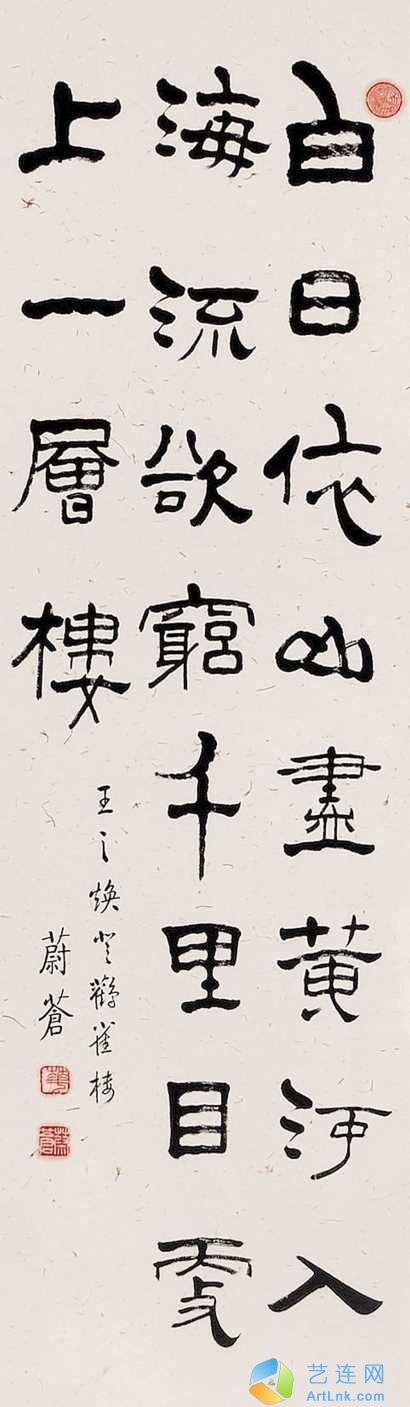 白日依山盡黄河入
海流欲窮千里目更
上一層樓
王之焕登鸛雀楼
蔚蒼
艺连网
ArtLnk.com